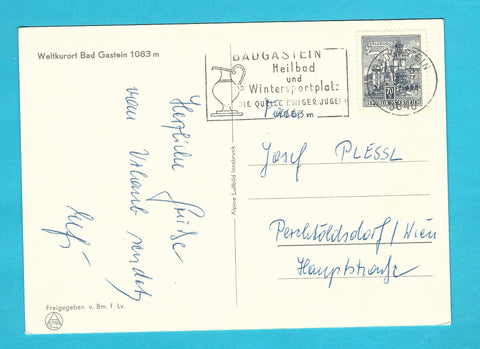 Weltkurort Bad Gastein 1083 m
BADGASTEIN
Heilbad
und
Wintersportplatz
DIE QUELLE EWIGER JUGEND
1083 m
REPUBLIK ÖSTERREICH
Herzliche Grüße
vom Urlaub sendet
Alpine Luftbild Innsbruck
Josef PLESSL
Perchtoldsdorf/Wien
Hauptstraße
Freigegeben v. Bm. f. Lv.